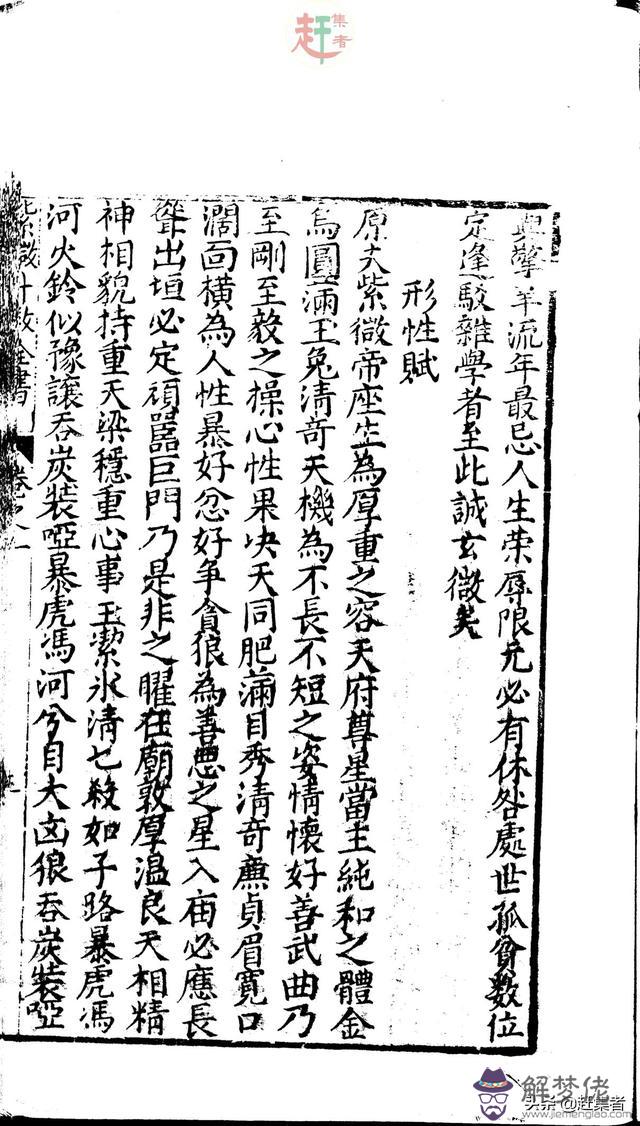 赶集者
與擎羊流年最忌人生荣辱限元必有休咎處世孤貧數位
定逢駁雜學者至此誠玄微矣
形性賦
原夫紫微帝座生為厚重之容天府尊星當主純和之體金
烏圓滿玉兔清奇天機為不長不短之姿情懷好善武曲乃
至剛至毅之操心性果决天同肥滿目秀清奇廉貞眉寬口
濶面横為人性暴好忿好争貪狼為善惡之星入庙必應長
聳出垣必定頑嚚巨門乃是非之曜在廟敦厚温良天相精
神相貌持重天梁穩重心事玉潔氷清七殺如子路暴虎馮
河火鈴似豫讓吞炭裝啞暴虎馮河兮目大凶狼吞炭裝啞
紫微斗数全書 卷之一
解梦佬
www.jiemenglao.com
头条@赶集者